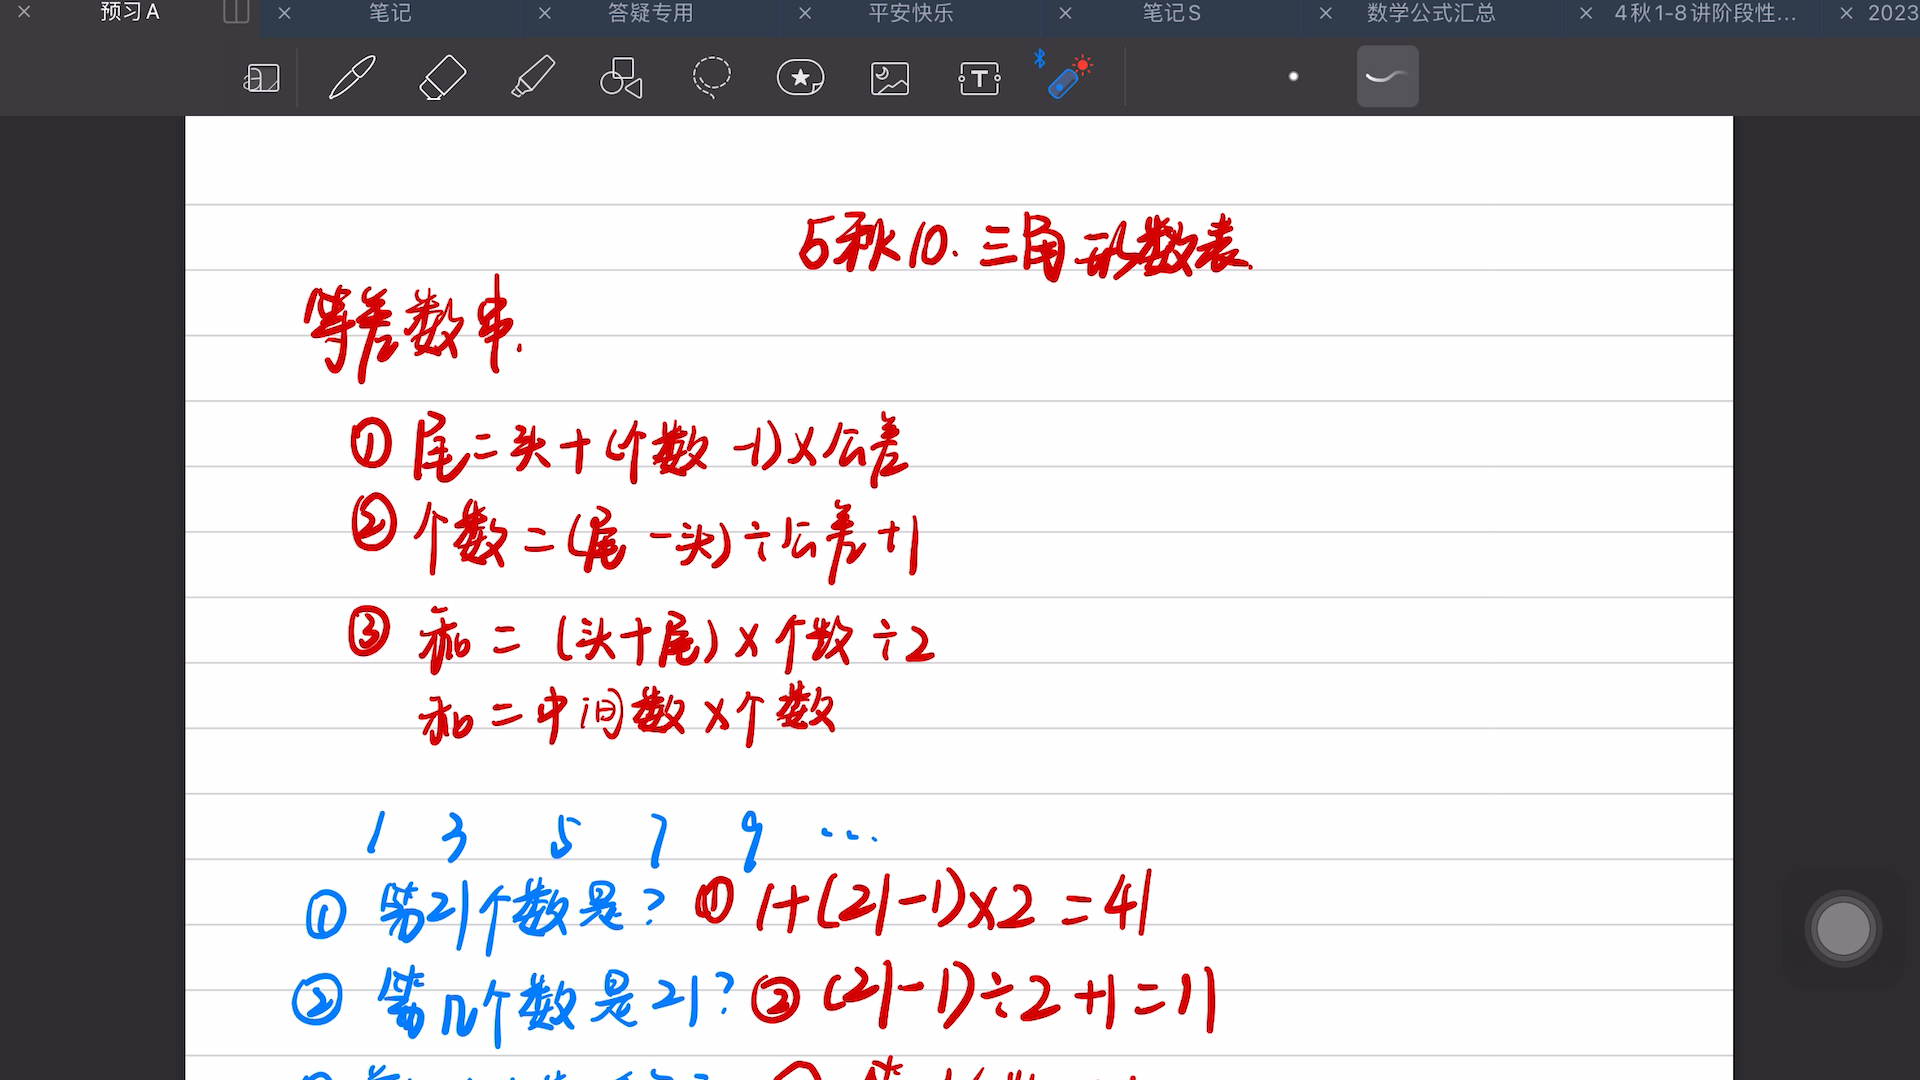 预习A
笔记
答疑专用
平安快乐
笔记S
数学公式汇总
4秋1-8讲阶段性...
2023
5秋10.三角形数表.
等差数串.
① 尾=头+(个数-1)×公差
② 个数=(尾-头)÷公差+1
③ 和=(头+尾)×个数÷2
和=中间数×个数
1 3 5 7 9 ...
① 第21个数是? ① 1+(21-1)×2=41
② 第几个数是21? ② (21-1)÷2+1=11